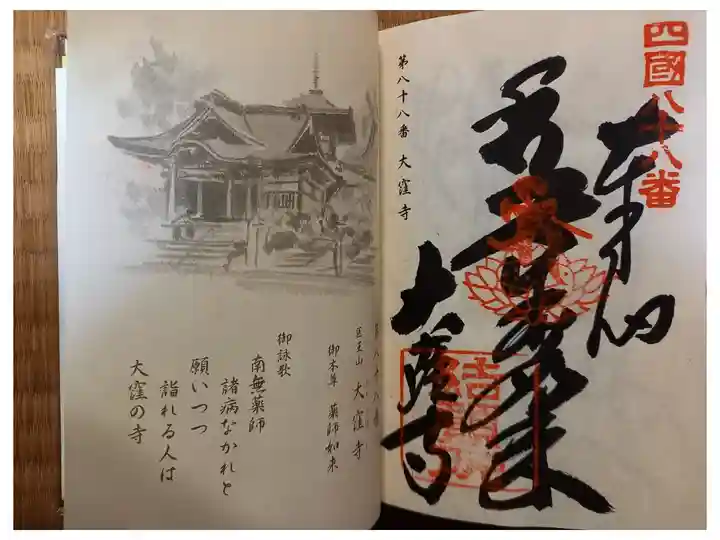 四國八十八番
奉納
大窪寺
第八十八番 大窪寺
第八十八番
医王山 大窪寺
御本尊 薬師如来
御詠歌
南無薬師
諸病なかれと
願いつつ
詣れる人は
大窪の寺